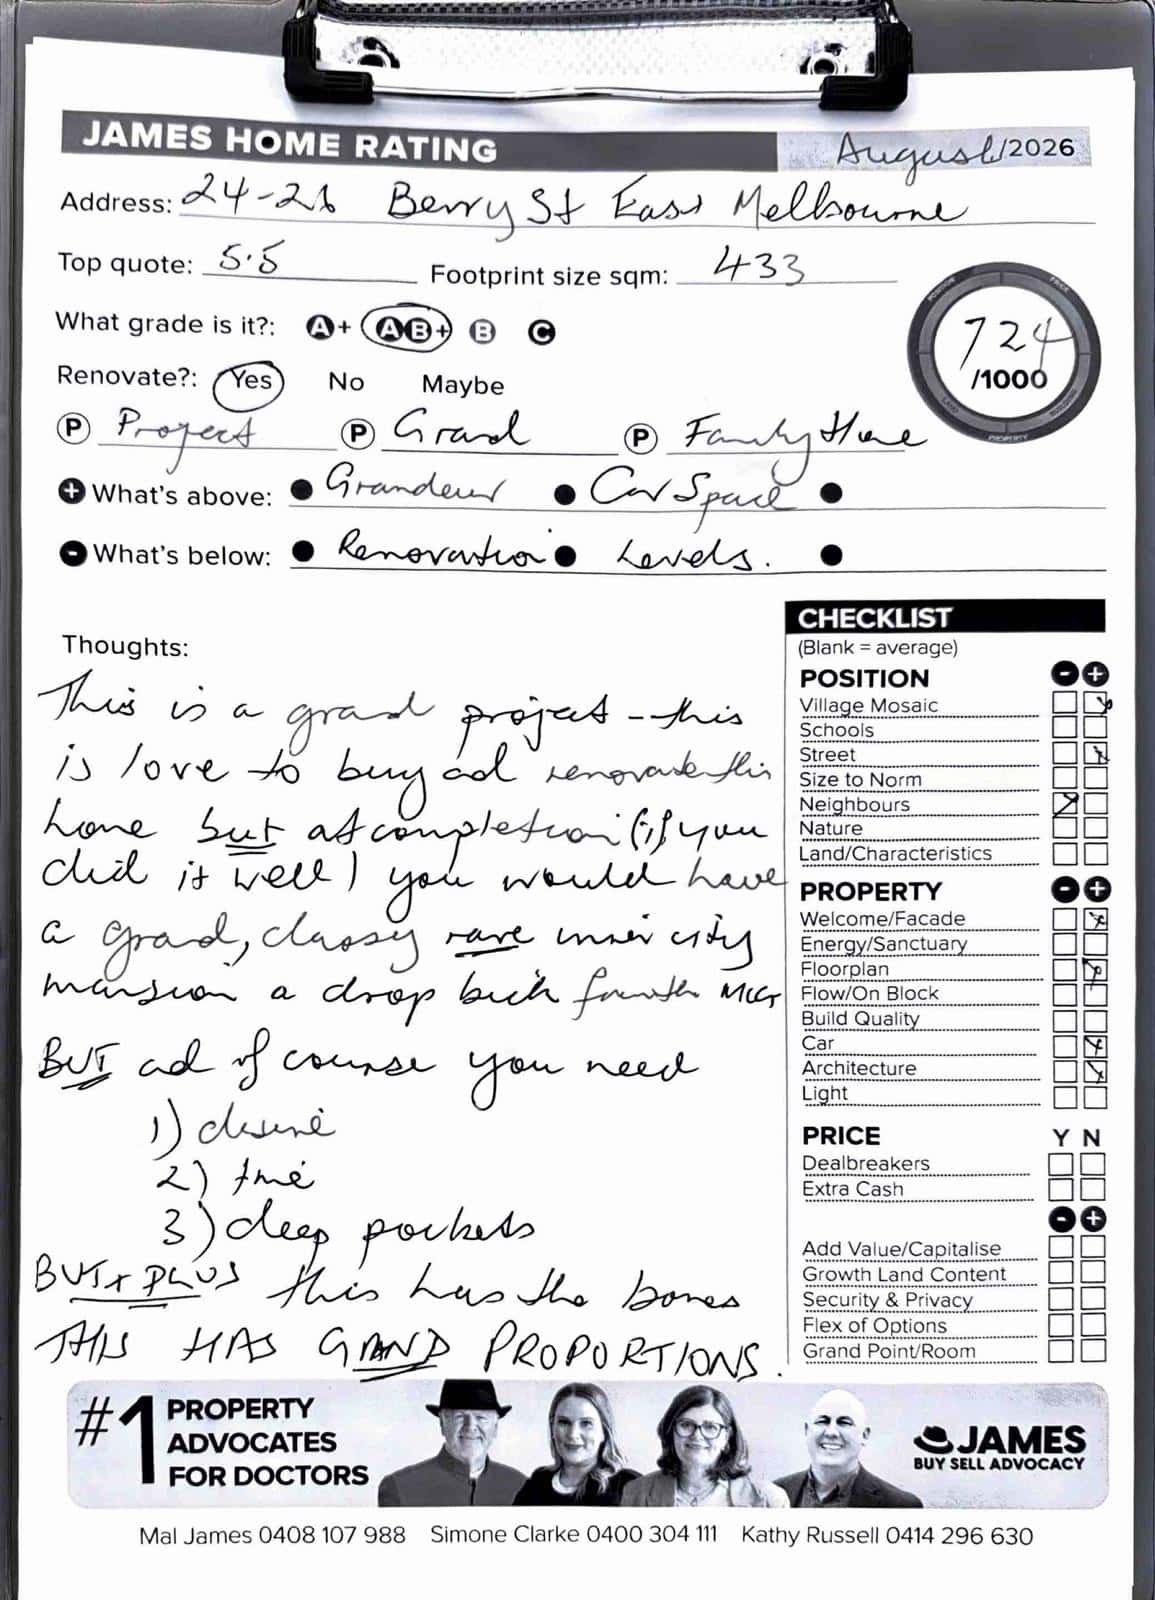 JAMES HOME RATING August/2026
Address: 24-26 Berry St East Melbourne
Top quote: 5.5 Footprint size sqm: 433
What grade is it?: A+ AB+ B C
724
/1000
Renovate?: Yes No Maybe
P Project P Grand P Family Home
+ What's above: • Grandeur • Car Space •
- What's below: • Renovation • Levels. •
CHECKLIST
(Blank = average)
POSITION - +
Village Mosaic
Schools
Street
Size to Norm
Neighbours
Nature
Land/Characteristics
PROPERTY - +
Welcome/Facade
Energy/Sanctuary
Floorplan
Flow/On Block
Build Quality
Car
Architecture
Light
PRICE Y N
Dealbreakers
Extra Cash
- +
Add Value/Capitalise
Growth Land Content
Security & Privacy
Flex of Options
Grand Point/Room
Thoughts:
This is a grand project - this
is love to buy and renovate this
home but at completion (if you
did it well) you would have
a grand, classy rare inner city
mansion a drop kick from the MCG
BUT and of course you need
1) desire
2) time
3) deep pockets
BUT + PLUS this has the bones
THIS HAS GRAND PROPORTIONS.
#1 PROPERTY
ADVOCATES
FOR DOCTORS
JAMES
BUY SELL ADVOCACY
Mal James 0408 107 988 Simone Clarke 0400 304 111 Kathy Russell 0414 296 630